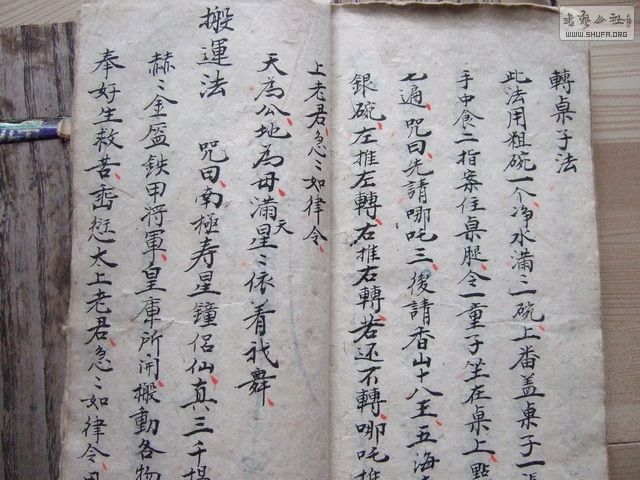 轉桌子法
此法用粗碗一个淨水滿二碗上番盖桌子一張
手中食二指案住桌腿令一童子坐在桌上點
七遍咒曰先請哪吒三後請香山十八王五海
銀碗左推左轉右推右轉若还不轉哪吒推
上老君急〻如律令
天為公地為母滿天星〻依着我舞
搬運法 咒曰南極寿星鐘侣仙真三千揭
赫〻金盔鉄甲將軍皇庫所開搬動各物
奉好生救苦大上老君急〻如律令
書藝公社
WWW.SHUFA.ORG